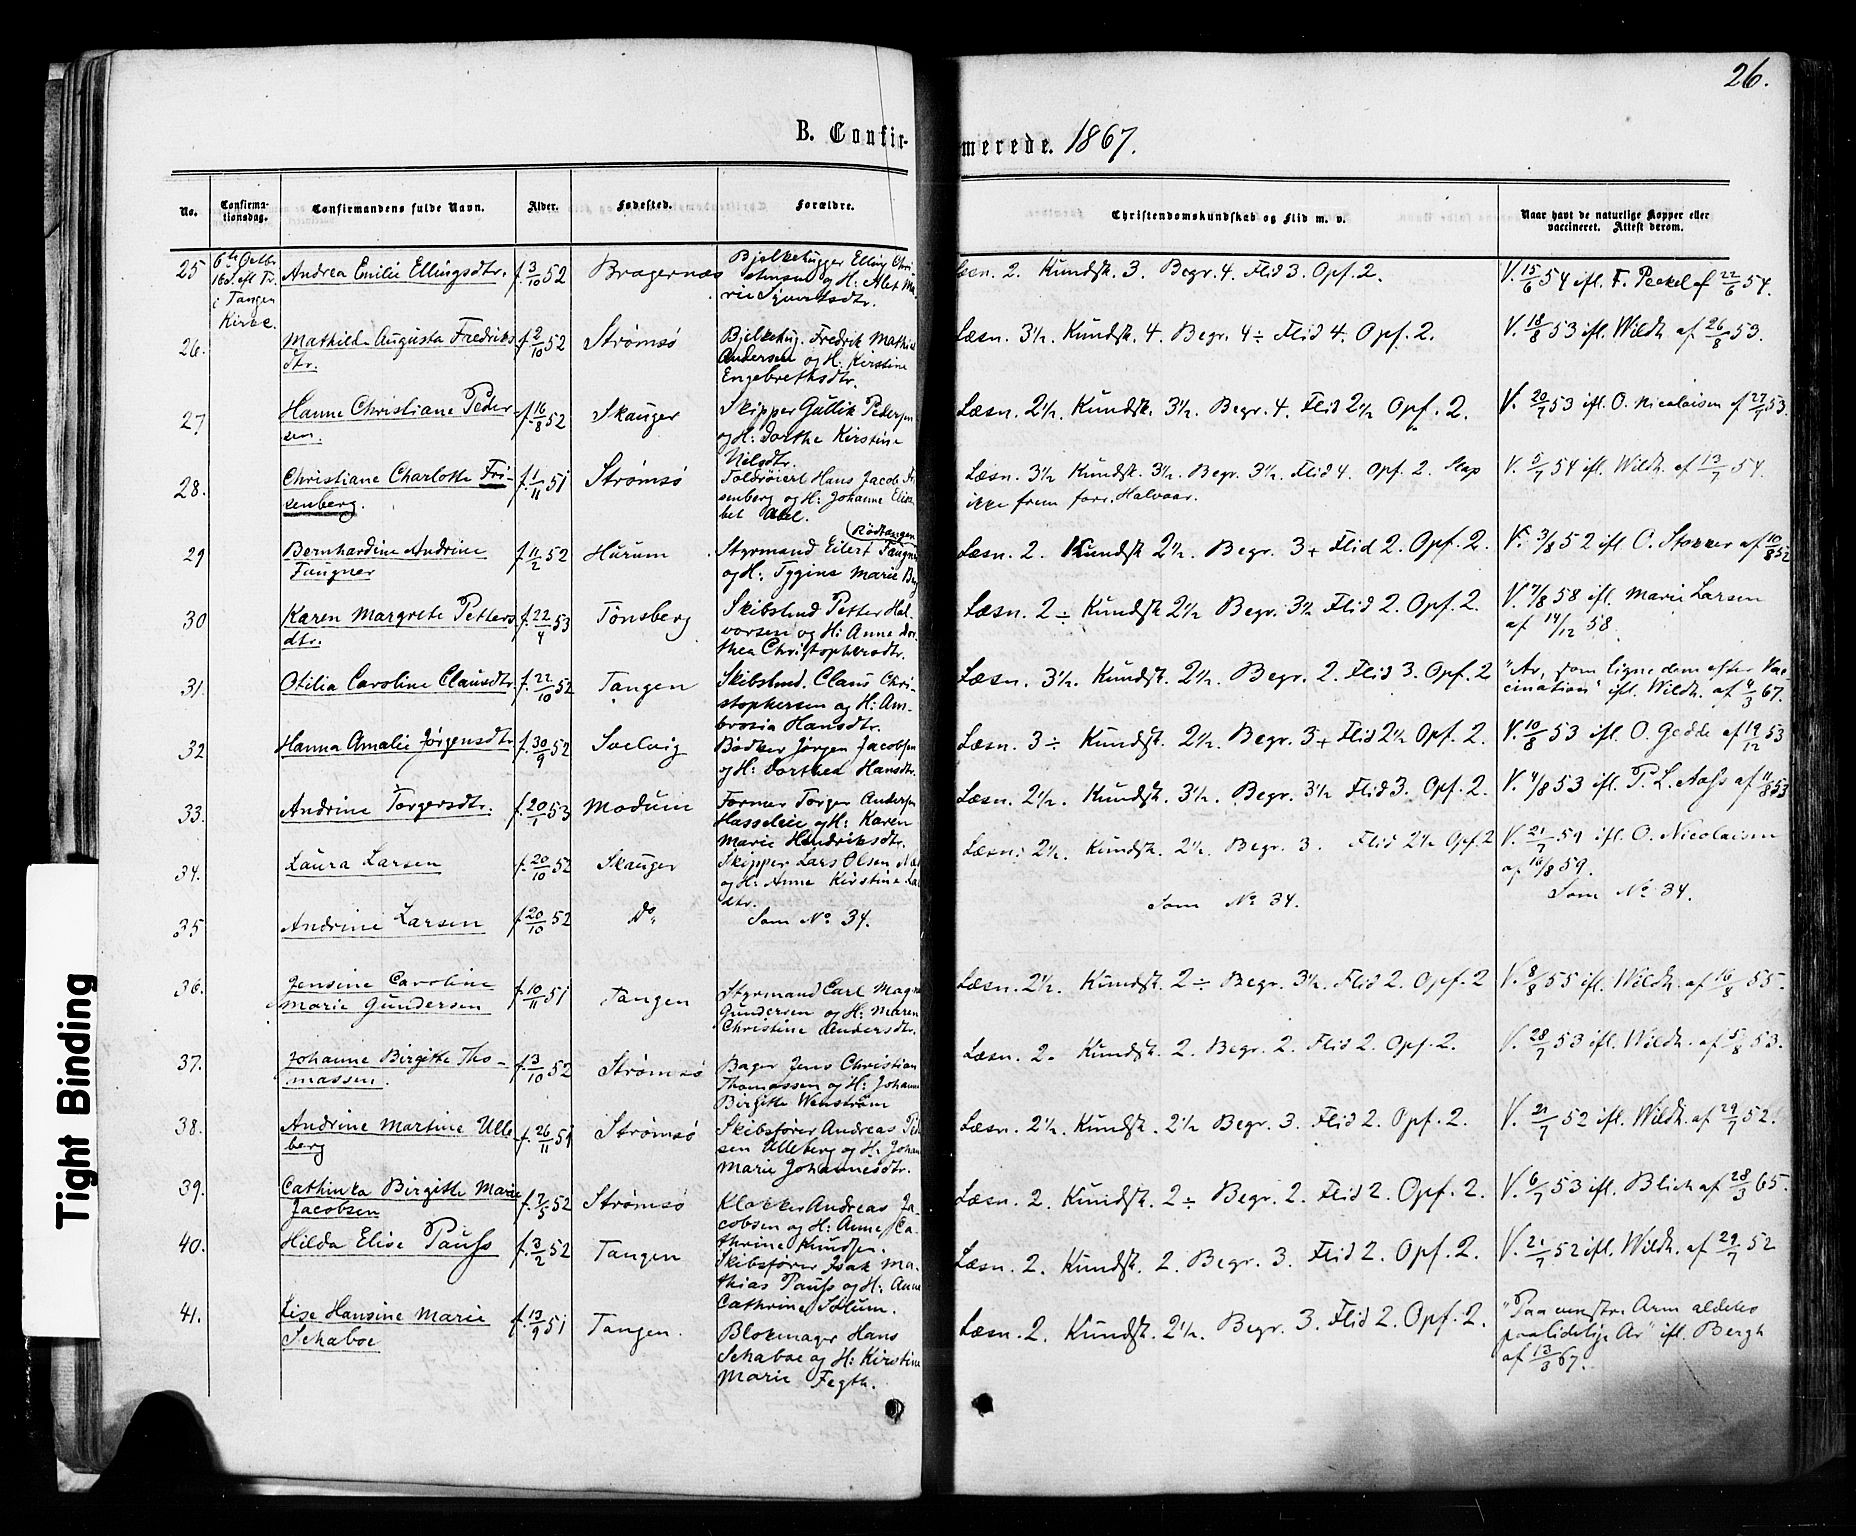 26.
B. Confir-
merede. 1867.
No.
Confirma-
tionsdag.
Confirmandens fulde Navn.
Alder.
Fødested.
Forældre.
Christendomskundskab og Flid m. v.
Naar havt de naturlige Kopper eller
vaccineret. Attest derom.
25
6te Octbr.
16s. eft Tr.
i Tangen
Kirke.
Andrea Emilie Ellingsdtr. f. 3/10 52 Bragernæs
Bjelkehugger Elling Chri-
stensen og H: Alet Ma-
rie Sjuertsdtr.
Læsn. 2. Kundsk. 3. Begr. 4. Flid 3. Opf. 2.
V. 15/6 54 ifl. F. Peckel af 22/6 54.
26.
Mathilde Augusta Fredriks-
dtr.
f. 2/10 52 Strømsø
Bjelkehug. Fredrik Mathias
Andersen og H. Kirstine
Engebrethsdtr.
Læsn. 3½. Kundsk. 4. Begr. 4 ÷ Flid 4. Opf. 2.
V. 18/8 53 ifl. Wildh. af 26/8 53.
27
Hanne Christiane Peder-
sen.
f. 16/8 52 Skauger
Skipper Gullik Pedersen
og H: Dorthe Kirstine
Nilsdtr.
Læsn. 2½. Kundsk. 3½. Begr. 4. Flid 2½ Opf. 2.
V. 20/7 53 ifl. O. Nicolaisen af 27/7 53.
28.
Christiane Charlotte Fri-
senberg.
f. 1/11 51 Strømsø
Toldrøiert Hans Jacob Fri-
senberg og H: Johanne Elisa-
bet Abel.
Læsn. 3½ Kundsk. 3½. Begr. 3½. Flid 4. Opf. 2. Slap
ikke frem forr. Halvaar.
V. 5/7 54 ifl. Wildh. af 13/7 54.
29
Bernhardine Andrine
Faugner
f. 11/2 52 Hurum
(Rødtangen
Styrmand Eilert Faugner
og H: Tygine Marie Berg
Læsn. 2. Kundsk 2½. Begr. 3+ Flid 2. Opf. 2.
V. 3/8 52 ifl. C. Storrer af 10/8 52
30
Karen Margrete Petters-
dtr.
f. 22/4 53 Tønsberg
Skibstmd Petter Hal-
vorsen og H: Anne Dor-
thea Christophersdtr.
Læsn. 2 ÷ Kundsk 2½ Begr. 3½ Flid 2. Opf. 2.
V. 7/8 58 ifl. Marie Larsen
af 14/12 58.
31.
Otilia Caroline Clausdtr. f. 22/10 52 Tangen
Skibstmd. Claus Chri-
stophersen og H: Am-
brosia Hansdtr.
Læsn. 3½. Kundsk. 2½. Begr. 2. Flid 3. Opf. 2
"Ar, som ligne dem efter Vac-
cination" ifl. Wildh. af 4/3 67.
32
Hanna Amalie Jørgensdtr. f. 30/9 52 Svelvig
Bødker Jørgen Jacobsen
og H: Dorthea Hansdtr.
Læsn. 3 ÷ Kundsk. 2½. Begr. 3+ Flid 2½ Opf. 2.
V. 10/8 53 ifl. O. Gedde af 19/12 53
33.
Andrine Torgersdtr. f. 20/1 53 Modum
Former Torger Andersen
Hasseleie og H: Karen
Marie Hendriksdtr.
Læsn. 2½. Kundsk. 3½. Begr. 3½ Flid 3. Opf. 2.
V. 4/8 53 ifl. P. L. Aass af 11/8 53
34.
Laura Larsen f. 20/10 52 Skauger
Skipper Lars Olsen
og H: Anne Kirstine
dtr.
Læsn: 2½. Kundsk. 2½. Begr. 3. Flid 2½ Opf. 2
V. 21/7 59 ifl. O. Nicolaisen
af 16/8 59.
35
Andrine Larsen f. 20/10 52 Do.
Som No. 34.
Som No. 34.
Som No. 34.
36.
Jensine Caroline
Marie Gundersen
f. 10/11 51 Tangen
Styrmand Carl Magn.
Gundersen og H: Maren
Christine Andersdtr.
Læsn. 2½. Kundsk. 2 ÷ Begr. 3½. Flid 2. Opf. 2
V. 8/8 55 ifl. Wildh. af 16/8 55.
37.
Johanne Birgitte Tho-
massen.
f. 3/10 52 Strømsø
Bager Jens Christian
Thomassen og H: Johanne
Birgitte Wenstrøm
Læsn. 2. Kundsk. 2. Begr. 2. Flid 2. Opf. 2.
V. 28/7 53 ifl. Wildh. af 5/8 53.
38.
Andrine Martine Ulle-
berg
f. 26/11 51 Strømsø
Skibsfører Andreas Peder-
sen Ulleberg og H: Johanne
Marie Johannesdtr.
Læsn. 2½. Kundsk. 2½ Begr. 3. Flid 2. Opf. 2.
V. 21/7 52 ifl. Wildh. af 29/7 52.
39.
Cathinka Birgitte Marie
Jacobsen
f. 7/5 52 Strømsø
Klokker Andreas Ja-
cobsen og H: Anne Ca-
thrine Knudsen.
Læsn. 2. Kundsk. 2 ÷ Begr. 2. Flid 2. Opf. 2.
V. 6/7 53 ifl. Blich af 28/3 65.
40.
Hilda Elise Pauss f. 3/2 52 Tangen
Skibsfører Isak Ma-
thias Pauss og H: Anne
Cathrine Schum.
Læsn. 2. Kundsk. 2. Begr. 3. Flid 2. Opf. 2.
V. 21/7 52 ifl. Wildh. af 29/7 52
41.
Lise Hansine Marie
Schaboe
f. 13/9 51 Tangen.
Blokmager Hans
Schaboe og H: Kirstine
Marie Fegth.
Læsn. 2. Kundsk. 2½. Begr. 3. Flid 2. Opf. 2.
"Paa venstr. Arm aldeles
paalidelige Ar" ifl. Bergh
af 13/3 67.
Tight Binding